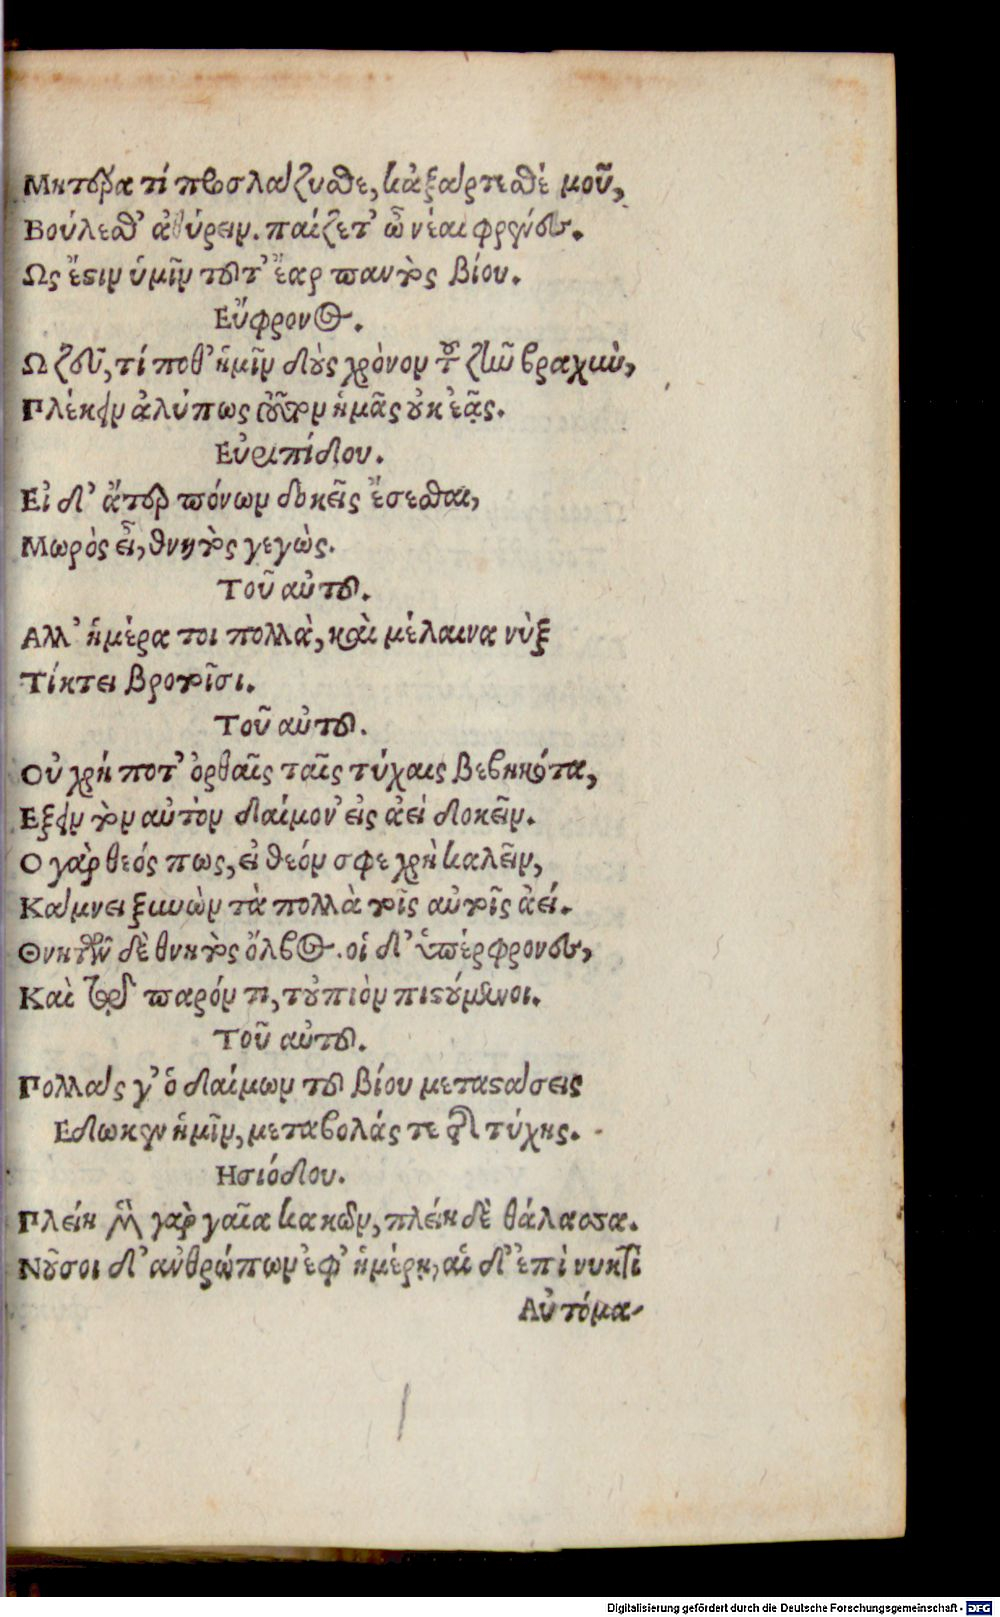 Μητέρα τί προσλάζυσθε, κἀξάρτεσθέ μοῦ,
Βούλεσθ' ἀθύρειν. παίζετ' ὦ νέαι φρένες.
Ως ἔστιν ὑμῖν τοῦτ' ἔαρ παντὸς βίου.
Εὔφρονος.
Ω ζεῦ, τί ποθ' ἡμῖν δοὺς χρόνον τοῦ ζῆν βραχὺν,
Πλέκειν ἀλύπως τοῦτον ἡμᾶς οὐκ ἐᾷς.
Εὐριπίδου.
Εἰ δ' ἄτερ πόνων δοκεῖς ἔσεσθαι,
Μωρὸς εἶ, θνητὸς γεγὼς.
Τοῦ αὐτοῦ.
Αλλ' ἡμέρα τοι πολλὰ, καὶ μέλαινα νὺξ
Τίκτει βροτοῖσι.
Τοῦ αὐτοῦ.
Οὐ χρή ποτ' ὀρθαῖς ταῖς τύχαις βεβηκότα,
Εξειν τὸν αὐτὸν δαίμον' εἰς ἀεί δοκεῖν.
Ο γὰρ θεός πως, εἰ θεόν σφε χρὴ καλεῖν,
Κάμνει ξυνὼν τὰ πολλὰ τοῖς αὐτοῖς ἀεί.
Θνητῶν δὲ θνητὸς ὄλβος. οἱ δ' ὑπέρφρονες,
Καὶ τῷ παρόν τι, τοὐπιὸν πιστούμενοι.
Τοῦ αὐτοῦ.
Πολλάς γ' ὁ δαίμων τοῦ βίου μεταστάσεις
Εδωκεν ἡμῖν, μεταβολάς τε τῆς τύχης.
Ησιόδου.
Πλείη μὲν γὰρ γαῖα κακῶν, πλείη δὲ θάλασσα.
Νοῦσοι δ' ἀνθρώπων ἐφ' ἡμέρῃ, αἱ δ' ἐπὶ νυκτὶ
Αὐτόμα-
Digitalisierung gefördert durch die Deutsche Forschungsgemeinschaft - DFG